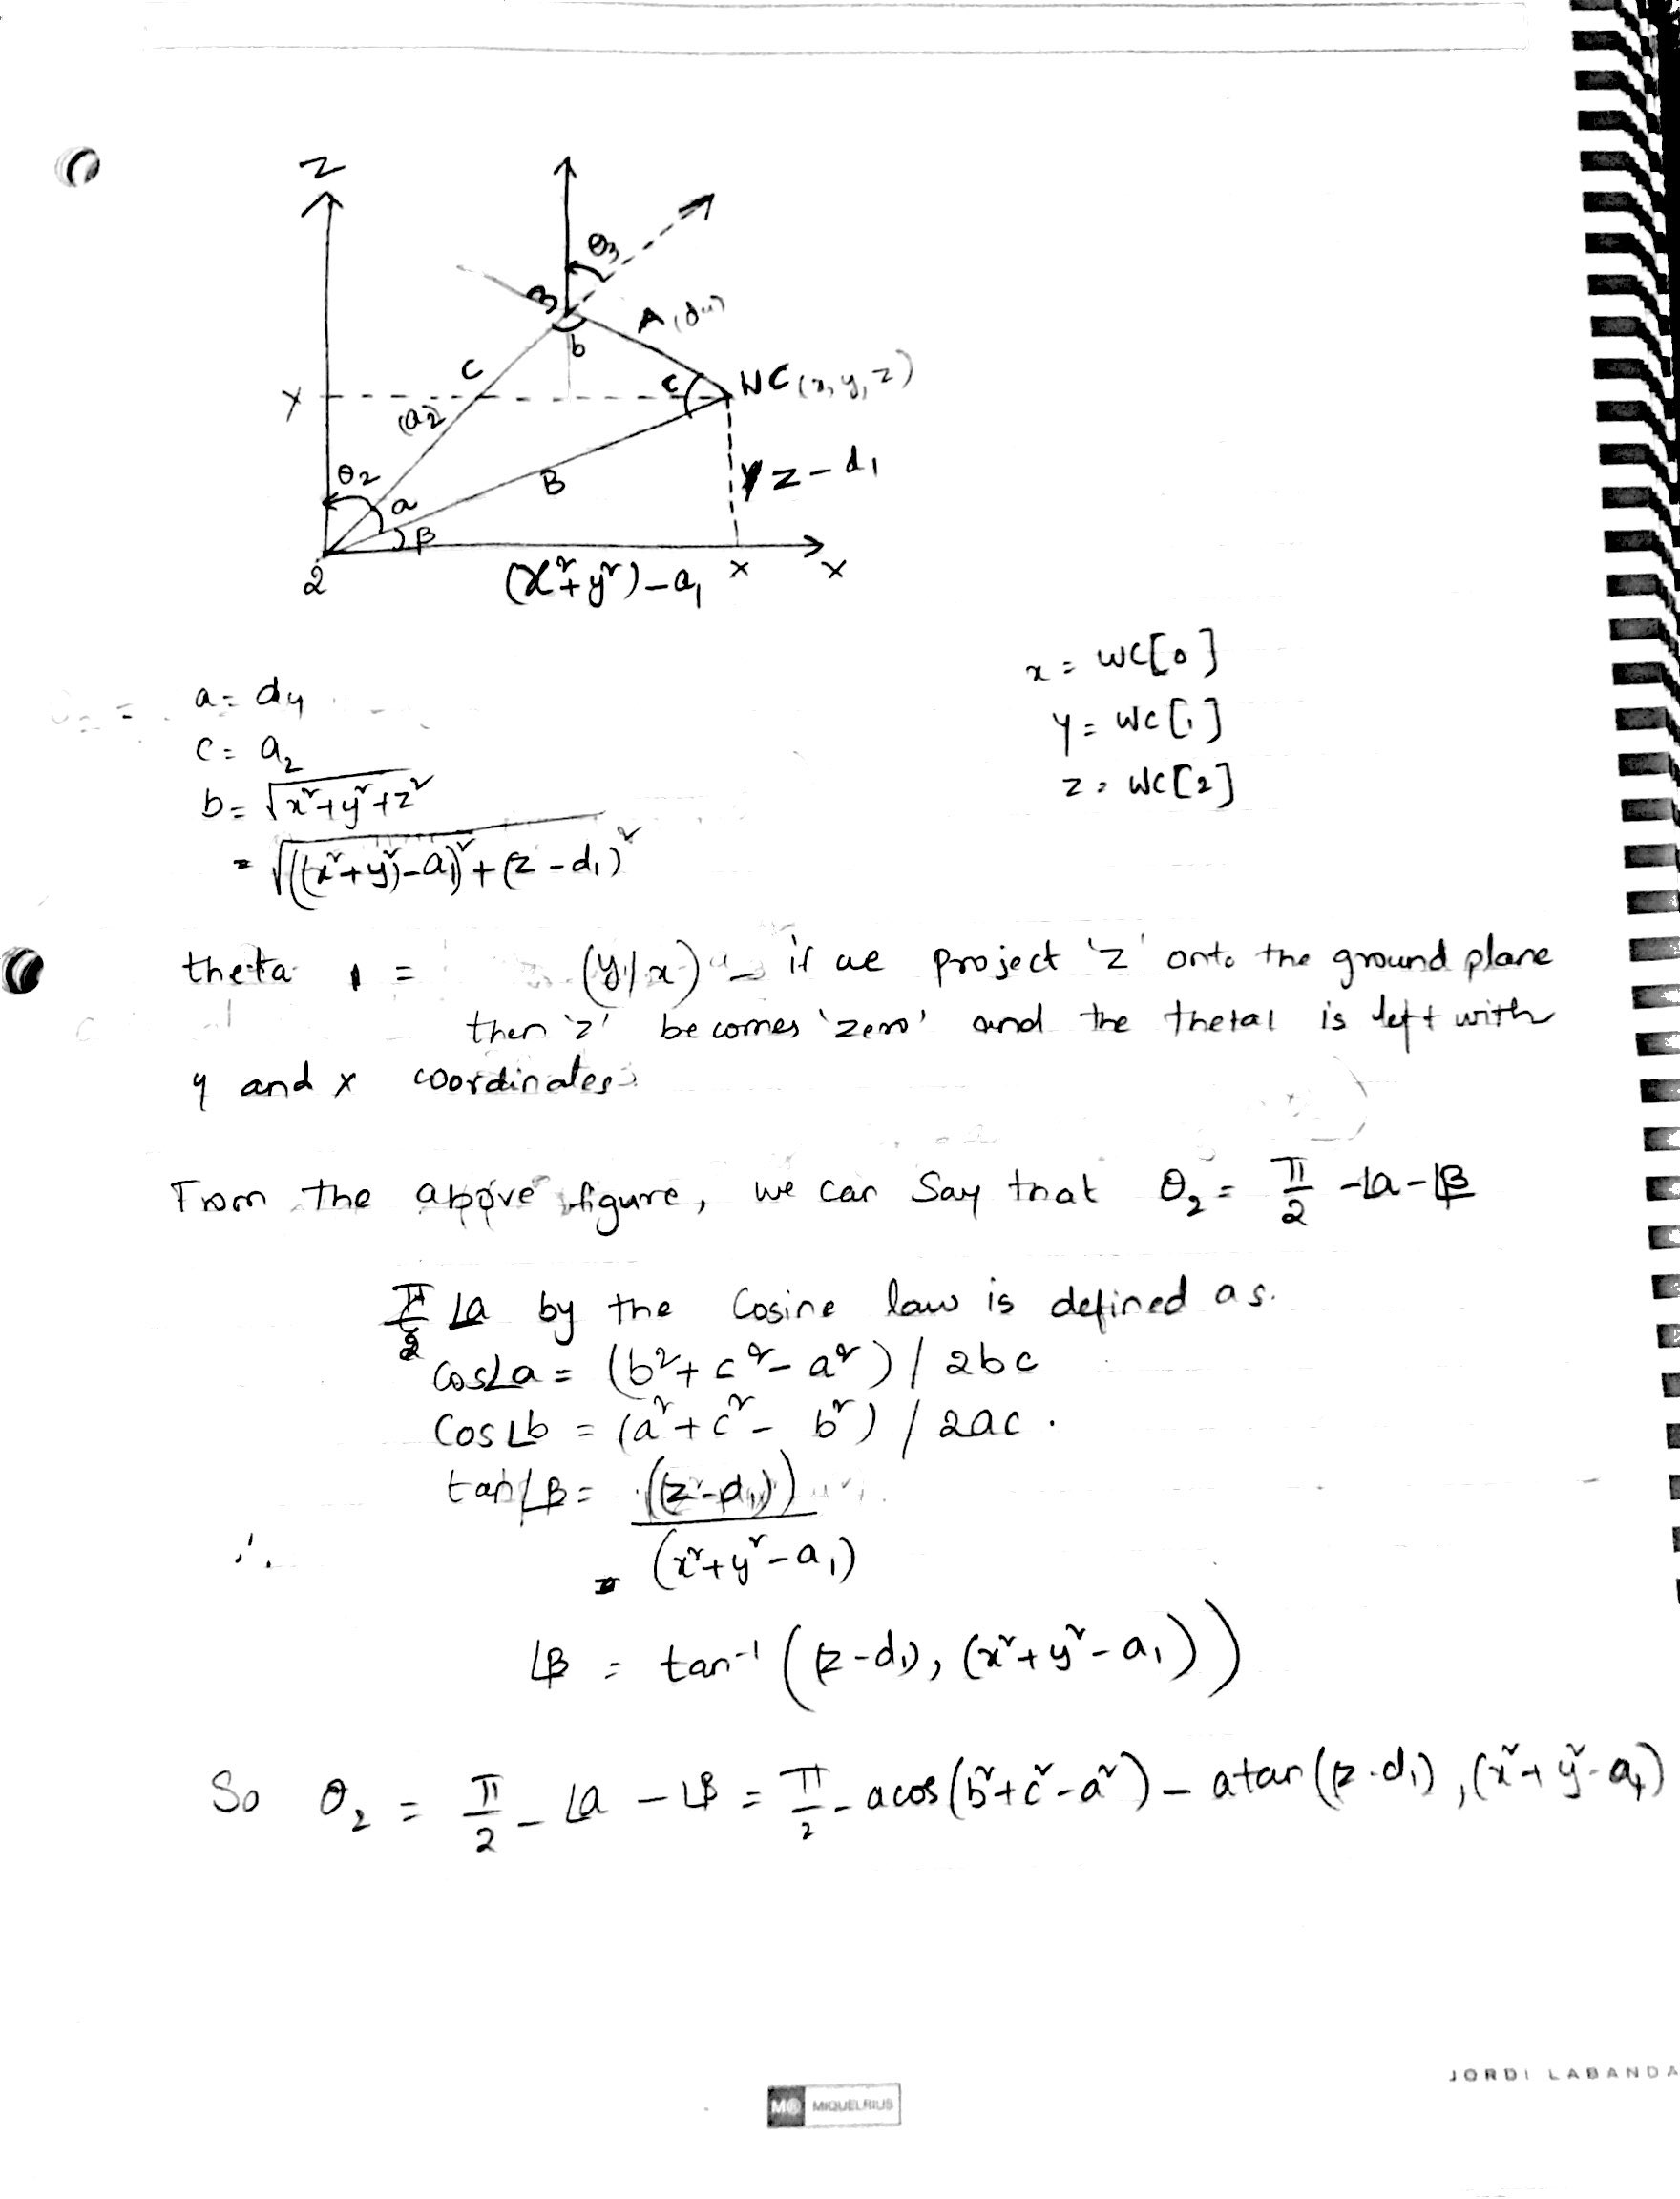 Z
θ3
3
A (d4)
b
C
c
WC (x, y, z)
Y
(a2)
θ2
a
B
z - d1
β
2
(x²+y²) - a1
x
x
a = d4
x = WC[0]
c = a2
y = WC[1]
b = √x²+y²+z²
z = WC[2]
= √((x²+y²)-a1)² + (z - d1)²
theta 1 = (y/x) - if we project 'z' onto the ground plane
then 'z' becomes 'zero' and the theta1 is left with
y and x coordinates.
From the above figure, we can say that θ2 = π/2 - ∠a - ∠β
∠a by the Cosine law is defined as.
Cos∠a = (b² + c² - a²) / 2bc
Cos∠b = (a² + c² - b²) / 2ac .
tan∠β = ((z - d1))
∴ (x²+y² - a1)
∠β = tan⁻¹ ((z - d1), (x²+y² - a1))
So θ2 = π/2 - ∠a - ∠β = π/2 - acos(b²+c²-a²) - atan(z - d1), (x²+y² - a1)
JORDI LABANDA
MR MIQUELRIUS